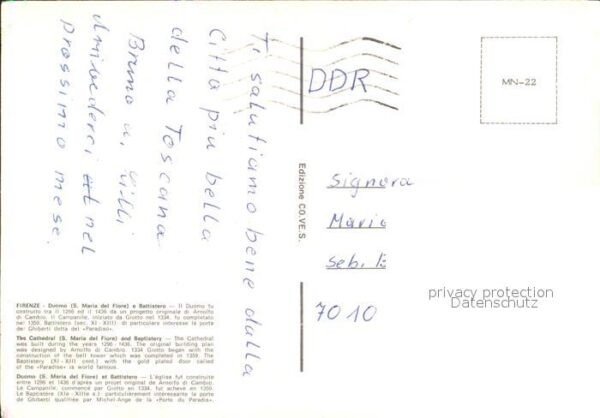 T' salutiamo bene dalla
Città più bella
della Toscana
Bruno u. Lilli
Arrivederci at nel
prossimo mese.
DDR
MN-22
Signora
Maria
Seb. B
7010
privacy protection
Datenschutz
Edizione CO.VE.S.
FIRENZE - Duomo (S. Maria del Fiore) e Battistero — Il Duomo fu
costruito tra il 1296 ed il 1436 da un progetto originale di Arnolfo
di Cambio. Il Campanile, iniziato da Giotto nel 1334, fu completato
nel 1359. Battistero (sec. XI - XIII) di particolare interesse le porte
del Ghiberti detta del «Paradiso».
The Cathedral (S. Maria del Fiore) and Baptistery — The Cathedral
was built during the years 1296 - 1436. The original building plan
was designed by Arnolfo di Cambio. 1334 Giotto began with the
construction of the bell tower which was completed in 1359. The
Baptistery (XI - XIII cent.) with the gold plated door called
of the «Paradise» is world famous.
Duomo (S. Maria del Fiore) et Battistero — L'église fut construite
entre 1296 et 1436 d'après un projet original de Arnolfo di Cambio.
Le Campanile, commencé par Giotto en 1334, fut achevé en 1359.
Le Baptistère (XIe - XIIIe s.): particulièrement interessante le porte
de Ghiberti qualifiée par Michel-Ange de la «Porte du Paradis».